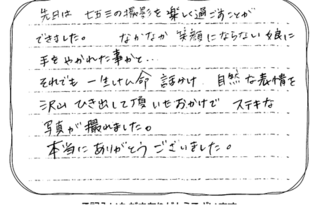 先日は 七五三の撮影を楽しく過ごすことが
できました。 なかなか 笑顔にならない娘に
手をやかれた事かと…
それでも 一生けん命 話まかけ 自然な表情を
沢山 ひき出して頂いたおかげで ステキな
写真が撮れました。
本当にありがとうございました。